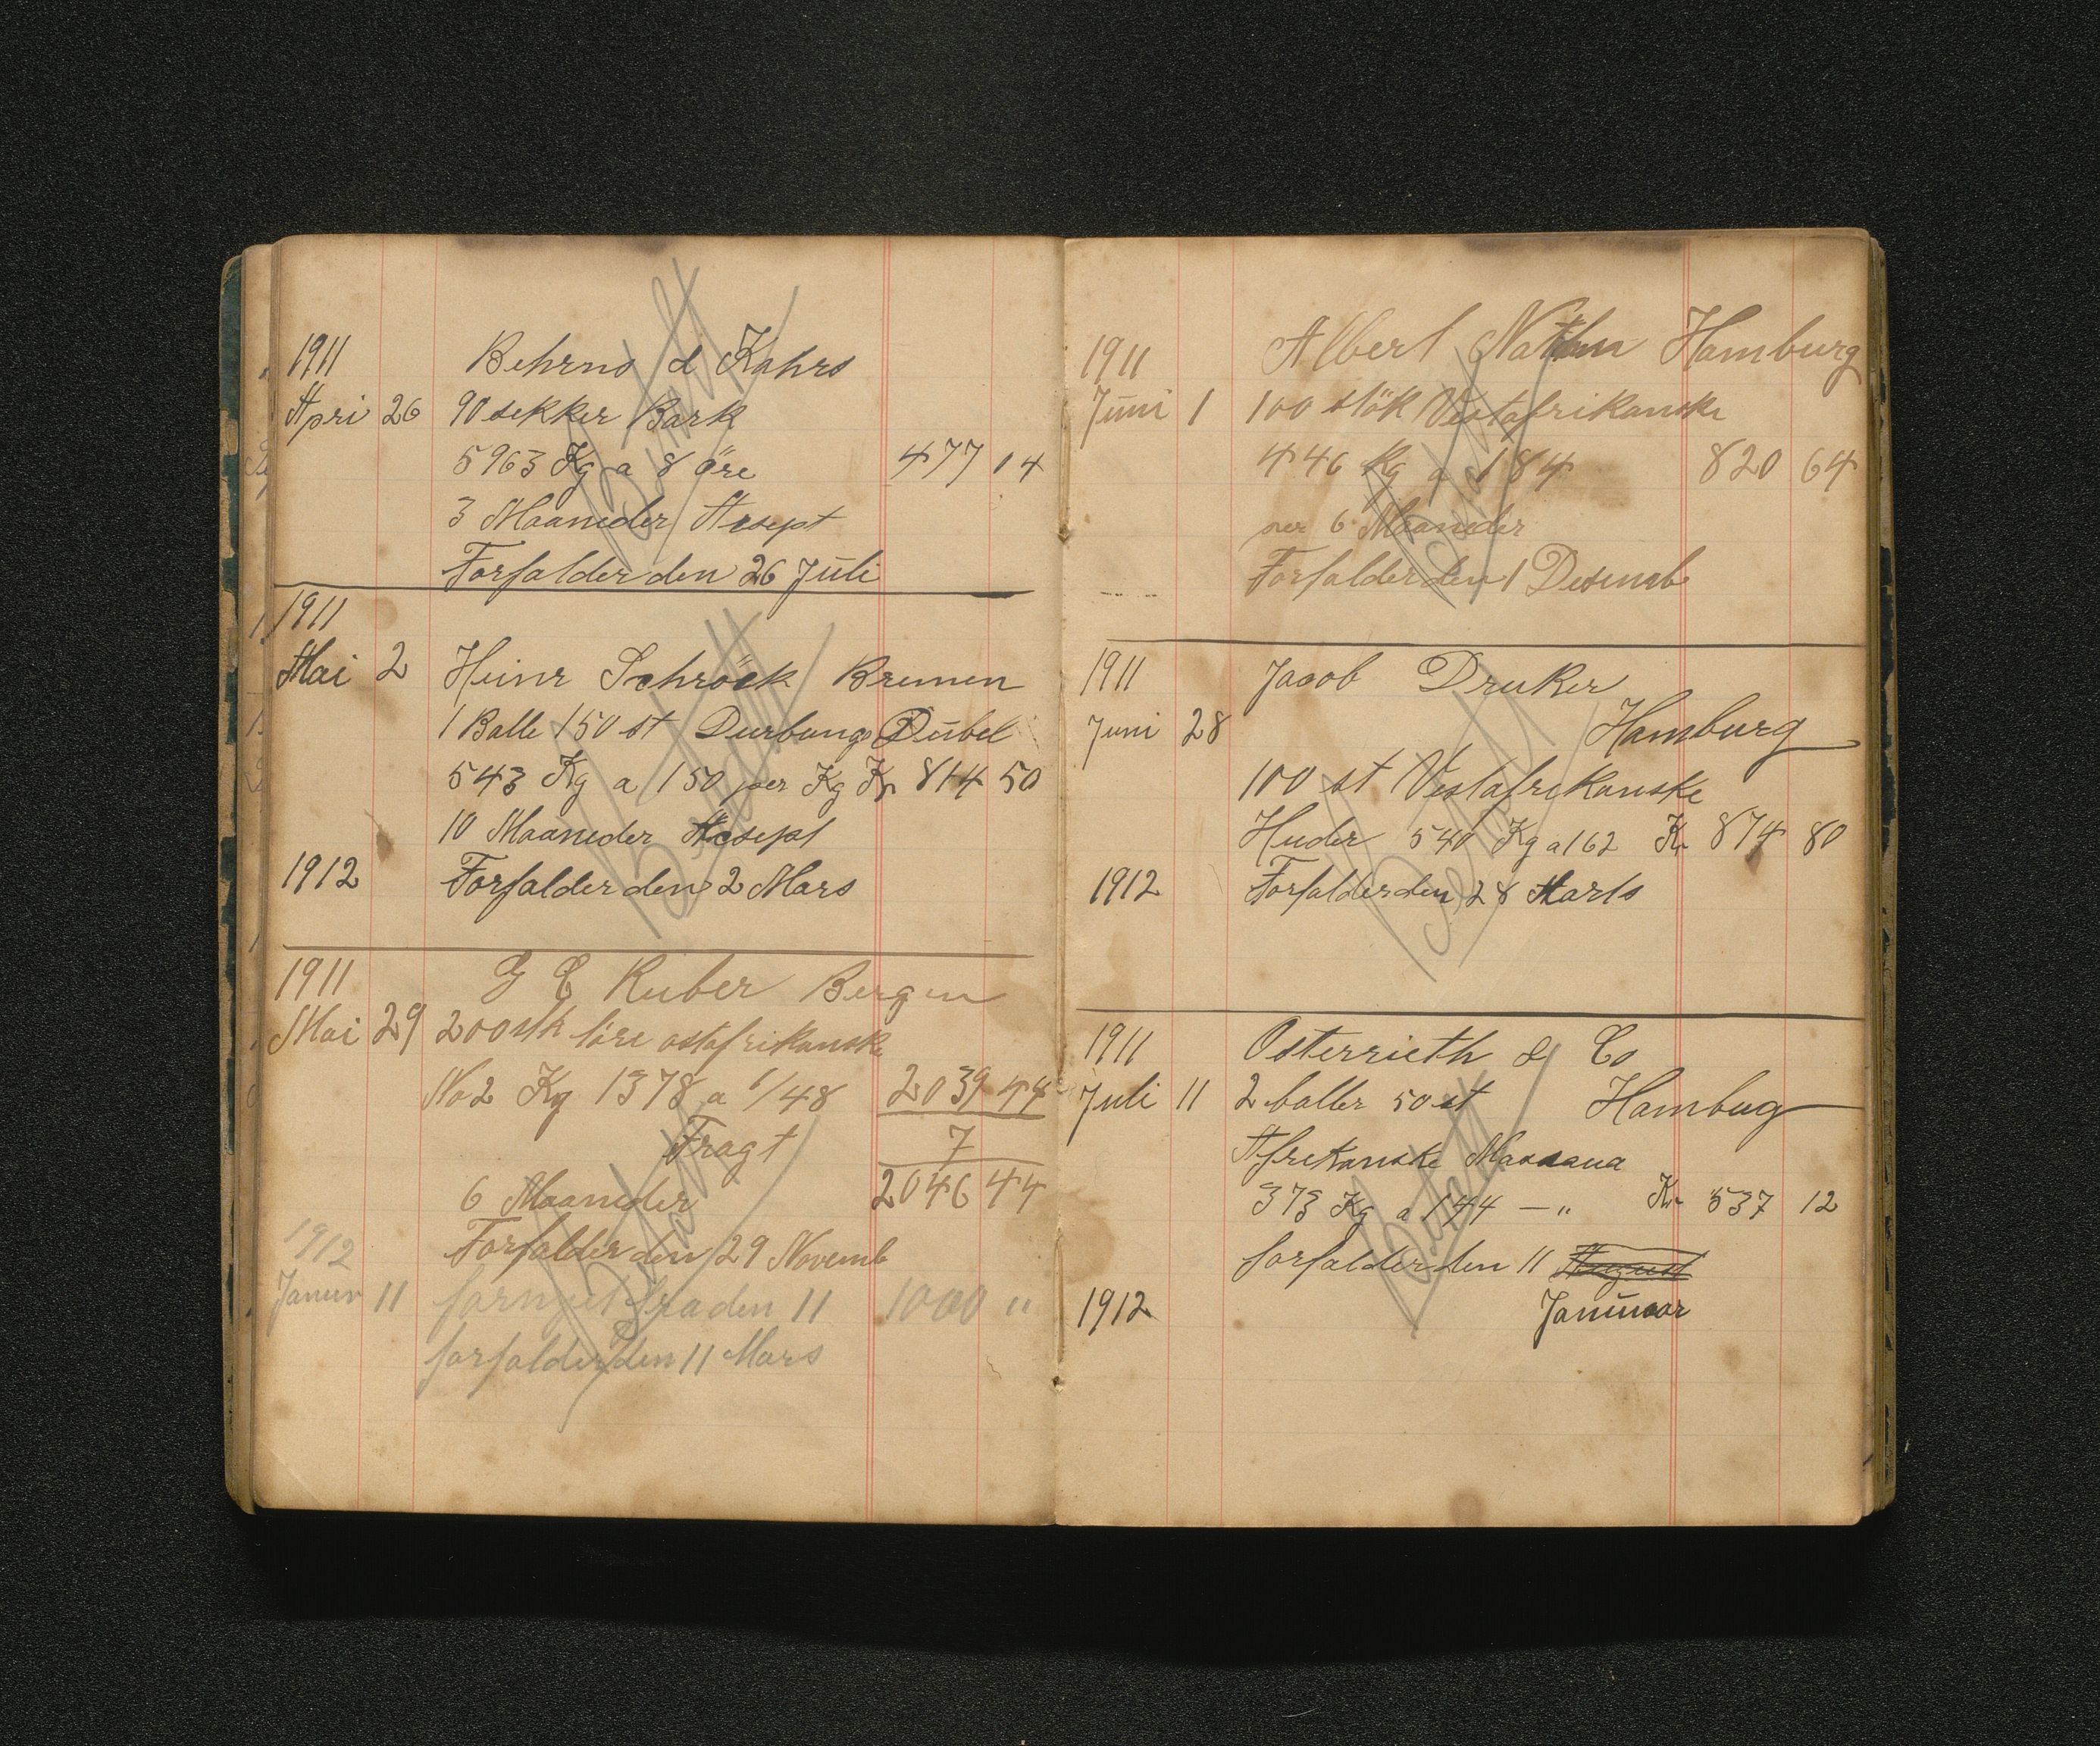 1911 Behrns & Kahrs
Apri 26 90 sekker Bark
5963 Kg a 8 öre 477 04
3 Maaneder Acsept
Forfalder den 26 Juli
1911
Mai 2 Heinr Schröck Bremen
1 Balle 150 st Durbung Dūbel
543 Kg a 150 per Kg Kr 814 50
10 Maaneder Acsept
1912 Forfalder den 2 Mars
1911 G C Ruber Bergen
Mai 29 200 stk töre ostafrikanske
No 2 Kg 1378 a 1/48 2039 44
Fragt 7
6 Maaneder 2046 44
Forfalder den 29 Novemb
1912
Januer 11 fornyet fra den 11 1000 "
forfalder den 11 Mars
Betalt
Betalt
Betalt
1911 Albert Nathan Hamburg
Juni 1 100 stök Vestafrikanske
446 Kg a 184 820 64
per 6 Maaneder
Forfalder den 1 Desemb
1911 Jacob Druker
Juni 28 Hamburg
100 st Vestafrikanske
Huder 540 Kg a 162 Kr 874 80
1912 Forfalder den 28 Marts
1911 Osterrieth & Co
Juli 11 2 baller 50 st Hambug
Afrikanske Massaua
373 Kg a 144 — " Kr 537 12
forfalder den 11 August
1912 Januaar
Betalt
Betalt
Betalt